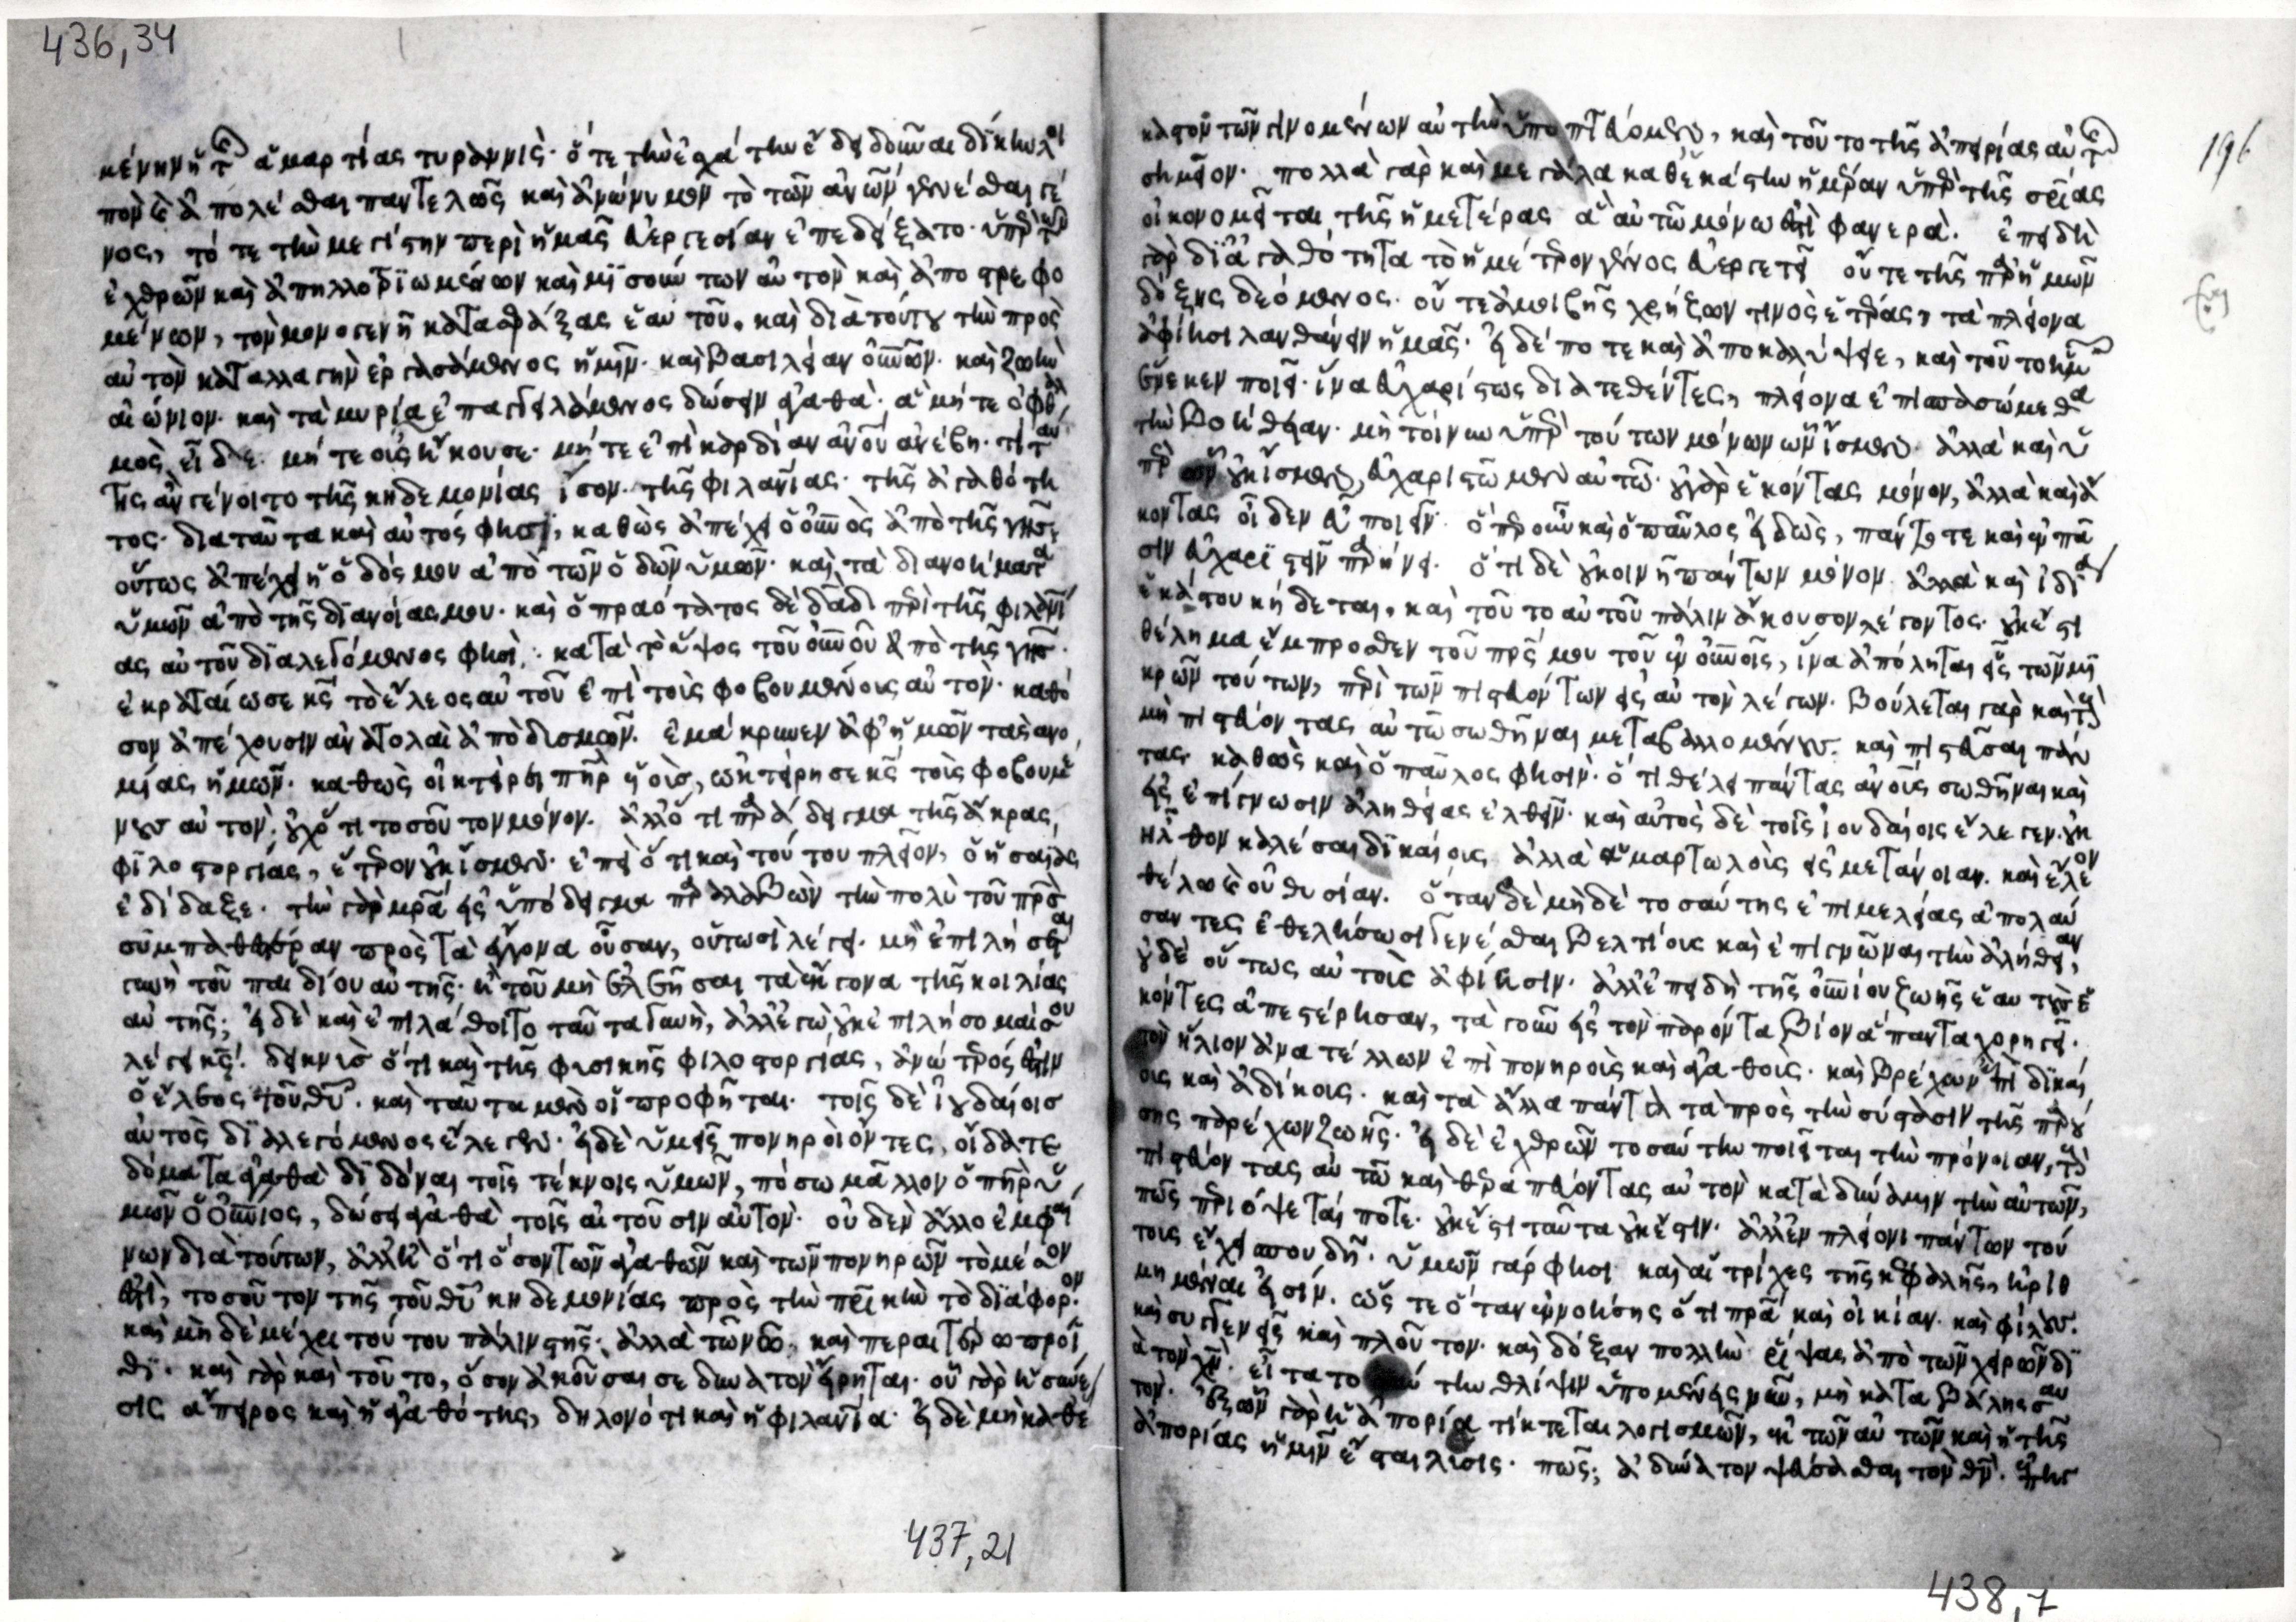 436,34
κέν ἦν ἡ τῆς ἁμαρτίας τυραννίς· ὅτε τὴν ἐσχάτην ἔδει δοῦναι δίκην
καὶ ἀπολέσθαι παντελῶς καὶ ἀνώνυμον τὸ τῶν ἀνων γενέσθαι γέ
νος, τότε τὴν μεγίστην περὶ ἡμᾶς εὐεργεσίαν ἐπεδείξατο· ὑπὲρ τῶν
ἐχθρῶν καὶ ἀπηλλοτριωμένων καὶ μισούντων αὐτὸν καὶ ἀποστρεφο
μένων, τὸν μονογενῆ κατασφάξας ἑαυτοῦ. καὶ διὰ τούτου τὴν πρὸς
αὐτὸν καταλλαγὴν ἐργασάμενος ἡμῖν· καὶ βασιλείαν οὐνῶν· καὶ ζωὴν
αἰώνιον· καὶ τὰ μυρία ἐπαγγειλάμενος δώσειν ἀγαθά· ἃ μήτε ὀφθαλ
μὸς εἶδε· μήτε οὖς ἤκουσε· μήτε ἐπὶ καρδίαν ἀνου ἀνέβη· τί ταύ
της ἂν γένοιτο τῆς κηδεμονίας ἴσον· τῆς φιλανίας· τῆς ἀγαθότη
τος· διὰ ταῦτα καὶ αὐτός φησι, καθὼς ἀπέχει ὁ οὐνος ἀπὸ τῆς γῆς,
οὕτως ἀπέχει ἡ ὁδός μου ἀπὸ τῶν ὁδῶν ὑμῶν· καὶ τὰ διανοήματα
ὑμῶν ἀπὸ τῆς διανοίας μου· καὶ ὁ πραότατος δὲ δαδ περὶ τῆς φιλανί
ας αὐτοῦ διαλεγόμενος φησὶ, κατὰ τὸ ὕψος τοῦ οὐνου ἀπὸ τῆς γῆς·
ἐκραταίωσε κς τὸ ἔλεος αὐτοῦ ἐπὶ τοὺς φοβουμένους αὐτόν· καθό
σον ἀπέχουσιν ἀνατολαὶ ἀπὸ δυσμῶν· ἐμάκρυνεν ἀφ' ἡμῶν τὰς ἀνο
μίας ἡμῶν· καθὼς οἰκτείρει πηρ υἱοὺς, ὠκτείρησε κς τοὺς φοβουμέ
νους αὐτόν· οὐχ ὅτι τοσοῦτον μόνον· ἀλλ' ὅτι παράδειγμα τῆς ἄκρας
φιλοστοργίας, ἕτερον οὐκ ἴσμεν· ἐπεὶ ὅτι καὶ τούτου πλέον, ὁ ἡσαΐας
ἐδίδαξε· τὴν γὰρ μρα εἰς ὑπόδειγμα παραλαβὼν τὴν πολὺ τοῦ πρς
συμπαθεστέραν πρὸς τὰ ἔγγονα οὖσαν, οὑτωσὶ λέγει· μὴ ἐπιλήσεται
γυνὴ τοῦ παιδίου αὐτῆς· ἢ τοῦ μὴ ἐλεῆσαι τὰ ἔκγονα τῆς κοιλίας
αὐτῆς; εἰ δὲ καὶ ἐπιλάθοιτο ταῦτα γυνὴ, ἀλλ' ἐγὼ οὐκ ἐπιλήσομαί σου
λέγει κς· δεικνὺς ὅτι καὶ τῆς φυσικῆς φιλοστοργίας, ἀνώτερός ἐστιν
ὁ ἔλεος τοῦ θυ· καὶ ταῦτα μὲν οἱ προφῆται· τοῖς δὲ ἰουδαίοις
αὐτὸς διαλεγόμενος ἔλεγεν· εἰ δὲ ὑμεῖς πονηροὶ ὄντες, οἴδατε
δόματα ἀγαθὰ διδόναι τοῖς τέκνοις ὑμῶν, πόσω μᾶλλον ὁ πηρ ὑ
μῶν ὁ οὐνιος, δώσει ἀγαθὰ τοῖς αἰτοῦσιν αὐτόν· οὐδὲν ἄλλο ἐμφαί
νων διὰ τούτων, ἀλλ' ἢ ὅτι ὅσον τῶν ἀγαθῶν καὶ τῶν πονηρῶν τὸ μέσον
ἐστὶ, τοσοῦτον τῆς τοῦ θυ κηδεμονίας πρὸς τὴν πρικὴν τὸ διάφορον·
καὶ μηδὲ μέχρι τούτου πάλιν στῆς· ἀλλὰ καὶ περαιτέρω πρόϊ
θι· καὶ γὰρ καὶ τοῦτο, ὅσον ἀκοῦσαί σε δυνατὸν εἴρηται· οὗ γὰρ ἡ σύνε
σις ἄπειρος καὶ ἡ ἀγαθότης, δηλονότι καὶ ἡ φιλανία· εἰ δὲ μὴ καθέ
437,21
196
καστον τῶν γινομένων αὐτὴν ὑποπτεύομεν, καὶ τοῦτο τῆς ἀπειρίας αὐτῆς
σημεῖον· πολλὰ γὰρ καὶ μεγάλα καθ' ἑκάστην ἡμέραν ὑπὲρ τῆς σρίας
οἰκονομεῖται τῆς ἡμετέρας ἃ αὐτῶ μόνω ἐστὶ φανερά· ἐπειδὴ
γὰρ δι' ἀγαθότητα τὸ ἡμέτερον γένος εὐεργετεῖ οὔτε τῆς παρ' ἡμῶν
δόξης δεόμενος· οὔτε ἀμοιβῆς χρήζων τινὸς ἑτέρας, τὰ πλείονα
ἀφίησι λανθάνειν ἡμᾶς· εἰ δέ ποτε καὶ ἀποκαλύψειε, καὶ τοῦτο ἡμῶν
ἕνεκεν ποιεῖ· ἵνα εὐχαρίστως διατεθέντες, πλείονα ἐπισπασώμεθα
τὴν βοήθειαν· μὴ τοίνυν ὑπὲρ τούτων μόνων ὧν ἴσμεν· ἀλλὰ καὶ ὑ
πὲρ ὧν οὐκ ἴσμεν, εὐχαριστῶμεν αὐτῶ· οὐ γὰρ ἑκόντας μόνον, ἀλλὰ καὶ ἄ
κοντας οἶδεν εὖ ποιεῖν· ὅπερ οὖν καὶ ὁ παῦλος εἰδὼς, πάντοτε καὶ ἐν πᾶ
σιν εὐχαριστεῖν παρήνει· ὅτι δὲ οὐ κοινῇ πάντων μόνον· ἀλλὰ καὶ ἰδία
ἑκάστου κήδεται, καὶ τοῦτο αὐτοῦ πάλιν ἄκουσον λέγοντος· οὐκ ἔστι
θέλημα ἔμπροσθεν τοῦ πρς μου τοῦ ἐν οὐνοις, ἵνα ἀπόληται εἷς τῶν μι
κρῶν τούτων, περὶ τῶν πιστευόντων εἰς αὐτὸν λέγων· βούλεται γὰρ καὶ τοὺς
μὴ πιστεύοντας αὐτῶ σωθῆναι μεταβαλλομένους· καὶ πιστεῦσαι πάν
τας· καθὼς καὶ ὁ παῦλος φησίν· ὅτι θέλει πάντας ἀνους σωθῆναι καὶ
εἰς ἐπίγνωσιν ἀληθείας ἐλθεῖν· καὶ αὐτὸς δὲ τοῖς ἰουδαίοις ἔλεγεν· οὐκ
ἦλθον καλέσαι δικαίους ἀλλὰ ἁμαρτωλοὺς εἰς μετάνοιαν· καὶ ἔλεον
θέλω καὶ οὐ θυσίαν· ὅταν δὲ μηδὲ τοσαύτης ἐπιμελείας ἀπολαύ
σαντες ἐθελήσωσι γενέσθαι βελτίους καὶ ἐπιγνῶναι τὴν ἀλήθειαν
οὐδὲ οὕτως αὐτοὺς ἀφίησιν· ἀλλ' ἐπειδὴ τῆς οὐνίου ζωῆς ἑαυτοὺς ἑ
κόντες ἀπεστέρησαν, τὰ γοῦν εἰς τὸν παρόντα βίον ἅπαντα χορηγεῖ·
τὸν ἥλιον ἀνατέλλων ἐπὶ πονηροὺς καὶ ἀγαθούς· καὶ βρέχων ἐπὶ δικαί
ους καὶ ἀδίκους· καὶ τὰ ἄλλα πάντα τὰ πρὸς τὴν σύστασιν τῆς παρού
σης παρέχων ζωῆς· εἰ δὲ ἐχθρῶν τοσαύτην ποιεῖται τὴν πρόνοιαν, τοὺς
πιστεύοντας αὐτῶ καὶ θεραπεύοντας αὐτὸν κατὰ δύναμιν τὴν αὐτῶν,
πῶς περιόψεταί ποτε· οὐκ ἔστι ταῦτα οὐκ ἔστιν· ἀλλ' ἐν πλείονι πάντων τού
τους ἔχει σπουδῇ· ὑμῶν γάρ φησι καὶ αἱ τρίχες τῆς κεφαλῆς, ἠριθ
μημέναι εἰσίν· ὥστε ὅταν ἐννοήσης ὅτι πρα καὶ οἰκίαν· καὶ φίλους·
καὶ συγγενεῖς καὶ πλοῦτον· καὶ δόξαν πολλὴν ῥίψας ἀπὸ τῶν χειρῶν δι
ὰ τὸν χν· εἶτα τοσαύτην θλίψιν ὑπομένεις νῦν, μὴ καταβάλης σαυ
τόν· ἐξ ὧν γὰρ ἡ ἀπορία τίκτεται λογισμῶν, ἐκ τῶν αὐτῶν καὶ ἡ τῆς
ἀπορίας ἡμῖν ἔσται λύσις· πῶς; ἀδύνατον ψεύσασθαι τὸν θν·
438,7